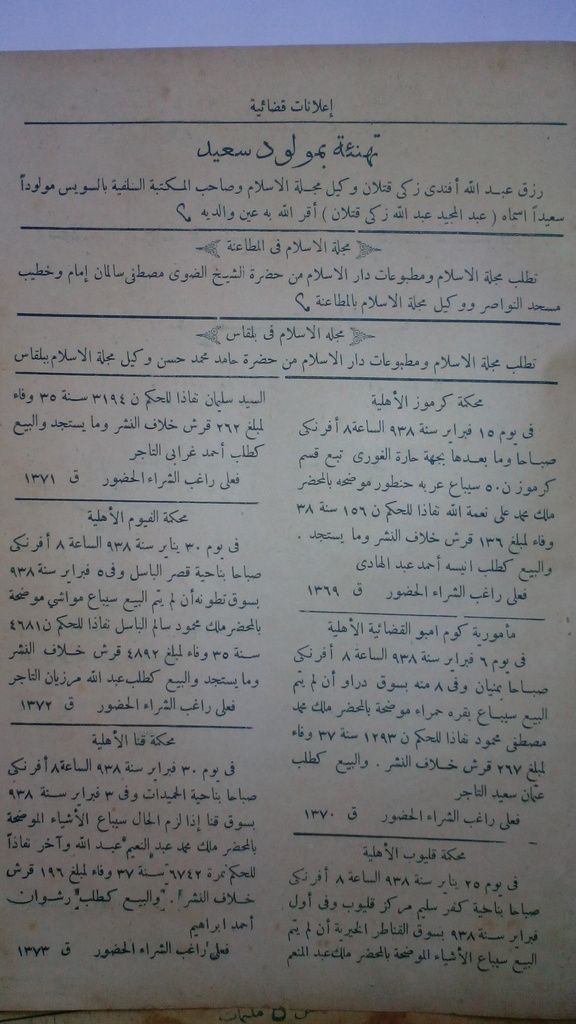 إعلانات قضائية
تهنئة بمولود سعيد
رزق عبد الله أفندى زكى قتلان وكيل مجلة الاسلام وصاحب المكتبة السلفية بالسويس مولوداً
سعيداً اسماه ( عبد المجيد عبد الله زكى قتلان ) أقر الله به عين والديه
مجلة الاسلام فى المطاعنة
تطلب مجلة الاسلام ومطبوعات دار الاسلام من حضرة الشيخ الضوى مصطفى سالمان إمام وخطيب
مسجد النواصر ووكيل مجلة الاسلام بالمطاعنة
مجله الاسلام فى بلقاس
تطلب مجلة الاسلام ومطبوعات دار الاسلام من حضرة حامد محمد حسن وكيل مجلة الاسلام ببلقاس
محكمة كرموز الأهلية
فى يوم ١٥ فبراير سنة ٩٣٨ الساعة ٨ أفرنكى
صباحا وما بعدها بجهة حارة الغورى تبع قسم
كرموز ن ٥٠ سيباع عربه حنطور موضحه بالمحضر
ملك محمد على نعمة الله نفاذا للحكم ن ١٥٦ سنة ٣٨
وفاء لمبلغ ١٣٦ قرش خلاف النشر وما يستجد .
والبيع كطلب انيسه أحمد عبد الهادى
فعلى راغب الشراء الحضور ق ١٣٦٩
مأمورية كوم امبو القضائية الأهلية
فى يوم ٦ فبراير سنة ٩٣٨ الساعة ٨ أفرنكى
صباحا بمنيان وفى ٨ منه بسوق دراو أن لم يتم
البيع سيباع بقره حمراء موضحة بالمحضر ملك محمد
مصطفى محمود نفاذا للحكم ن ١٢٩٣ سنة ٣٧ وفاء
لمبلغ ٢٦٧ قرش خلاف النشر . والبيع كطلب
عثمان سعيد التاجر
فعلى راغب الشراء الحضور ق ١٣٧٠
محكمة قليوب الأهلية
فى يوم ٢٥ يناير سنة ٩٣٨ الساعة ٨ أفرنكى
صباحا بناحية كفر سليم مركز قليوب وفى أول
فبراير سنة ٩٣٨ بسوق القناطر الخيرية أن لم يتم
البيع سيباع الأشياء الموضحة بالمحضر ملك عبد المنعم
السيد سليمان نفاذا للحكم ن ٣١٩٤ سنة ٣٥ وفاء
لمبلغ ٢٦٢ قرش خلاف النشر وما يستجد والبيع
كطلب أحمد غرابى التاجر
فعلى راغب الشراء الحضور ق ١٣٧١
محكمة الفيوم الأهلية
فى يوم ٣٠ يناير سنة ٩٣٨ الساعة ٨ أفرنكى
صباحا بناحية قصر الباسل وفى ٥ فبراير سنة ٩٣٨
بسوق تطونه أن لم يتم البيع سيباع مواشى موضحة
بالمحضر ملك محمود سالم الباسل نفاذا للحكم ن ٤٦٨١
سنة ٣٥ وفاء لمبلغ ٤٨٩٢ قرش خلاف النشر
وما يستجد والبيع كطلب عبد الله مرزبان التاجر
فعلى راغب الشراء الحضور ق ١٣٧٢
محكمة قنا الأهلية
فى يوم ٣٠ فبراير سنة ٩٣٨ الساعة ٨ أفرنكى
صباحا بناحية الحميدات وفى ٣ فبراير سنة ٩٣٨
بسوق قنا إذا لزم الحال سيباع الأشياء الموضحة
بالمحضر ملك محمد عبد النعيم عبد الله وآخر نفاذاً
للحكم نمرة ٦٧٤٢ سنة ٣٧ وفاء لمبلغ ١٩٦ قرش
خلاف النشر . والبيع كطلب رشوان
أحمد ابراهيم
فعلى راغب الشراء الحضور ق ١٣٧٣